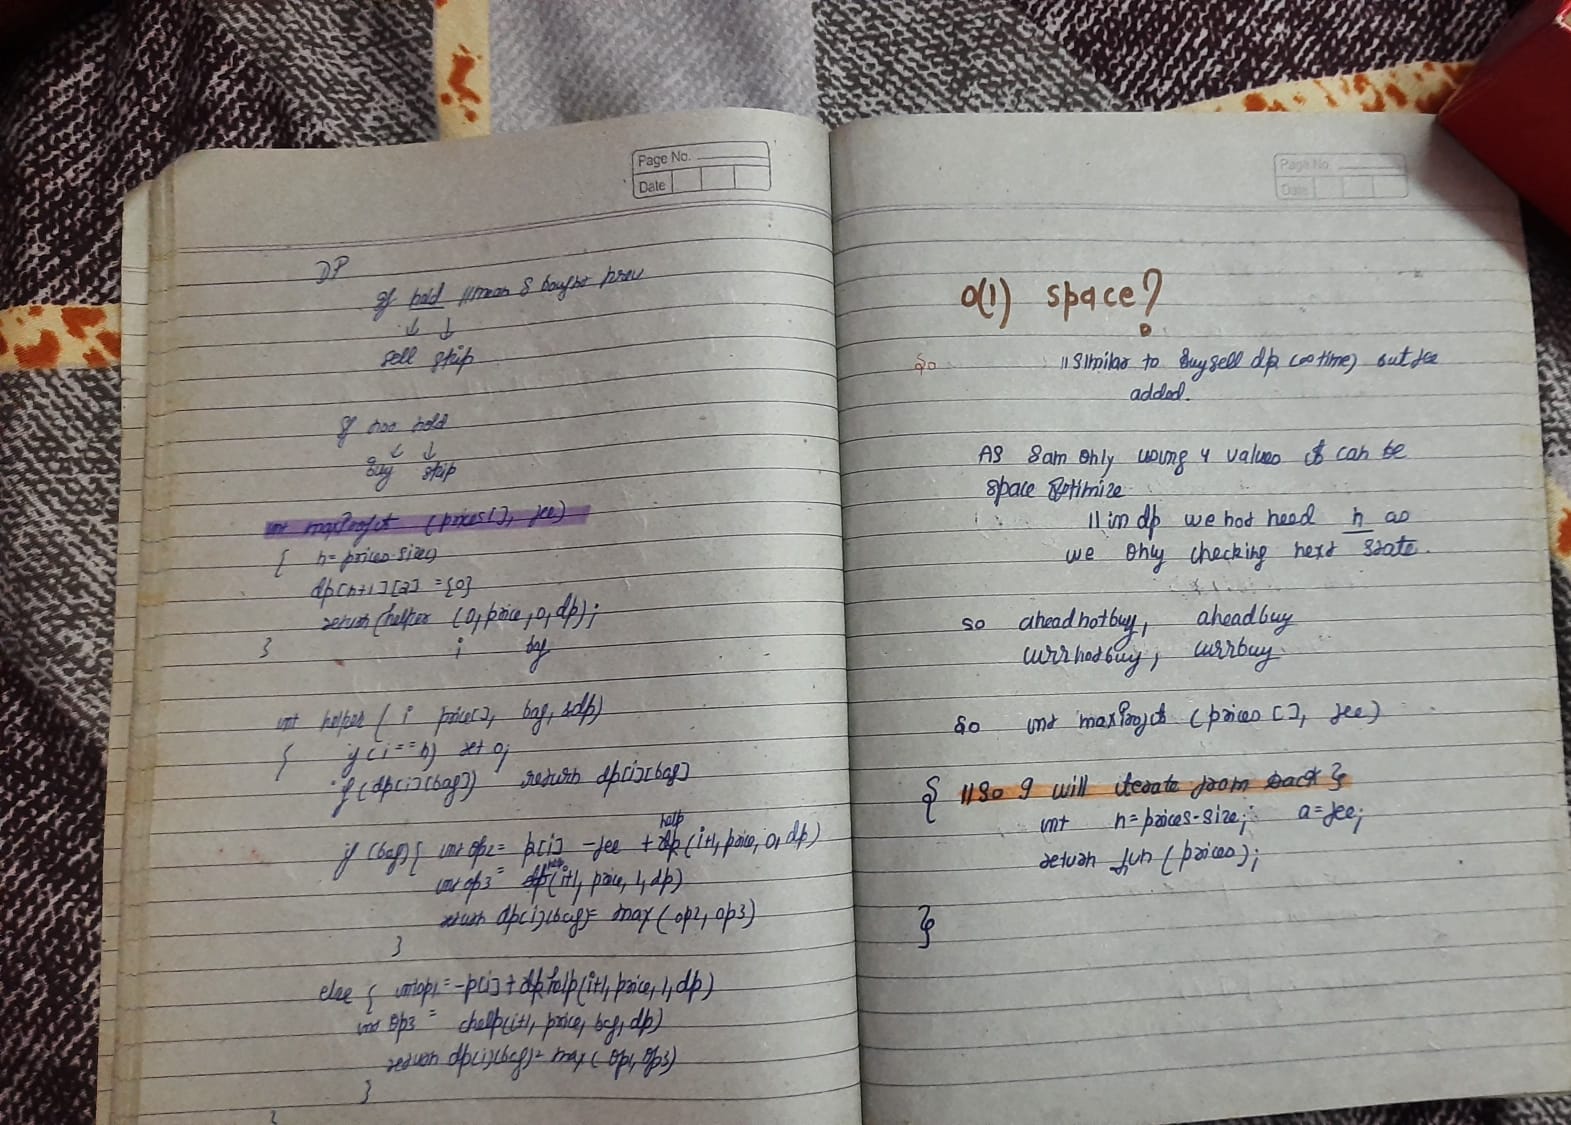 Page No.
Date
DP
If hold // mean I bought prev
sell skip
If not hold
Buy skip
int maxProfit (prices[], fee)
{ n = prices.size()
dp[n+1][2] = {0}
return (helper (0, price, 0, dp);
i bag
}
int helper ( i price[], bag, &dp)
{ if (i == n) ret 0;
if (dp[i][bag]) return dp[i][bag]
help
if (bag) { int op2 = p[i] - fee + (i+1, price, 0, dp)
help
int op3 = (i+1, price, 1, dp)
return dp[i][bag] = max (op2, op3)
}
else { int op1 = -p[i] + help(i+1, price, 1, dp)
int op3 = help(i+1, price, bag, dp)
return dp[i][bag] = max ( op1, op3)
}
}
Page No.
Date
O(1) space?
So // similar to Buy sell dp (∞ time) but fee
added.
As I am only using 4 values it can be
space optimize
// in dp we not need n as
we only checking next state.
so aheadnotbuy, aheadbuy
currnotbuy, currbuy.
So int maxProfit (prices [], fee)
{ // So I will iterate from back }
int n = prices.size; a = fee;
return fun (prices);
}